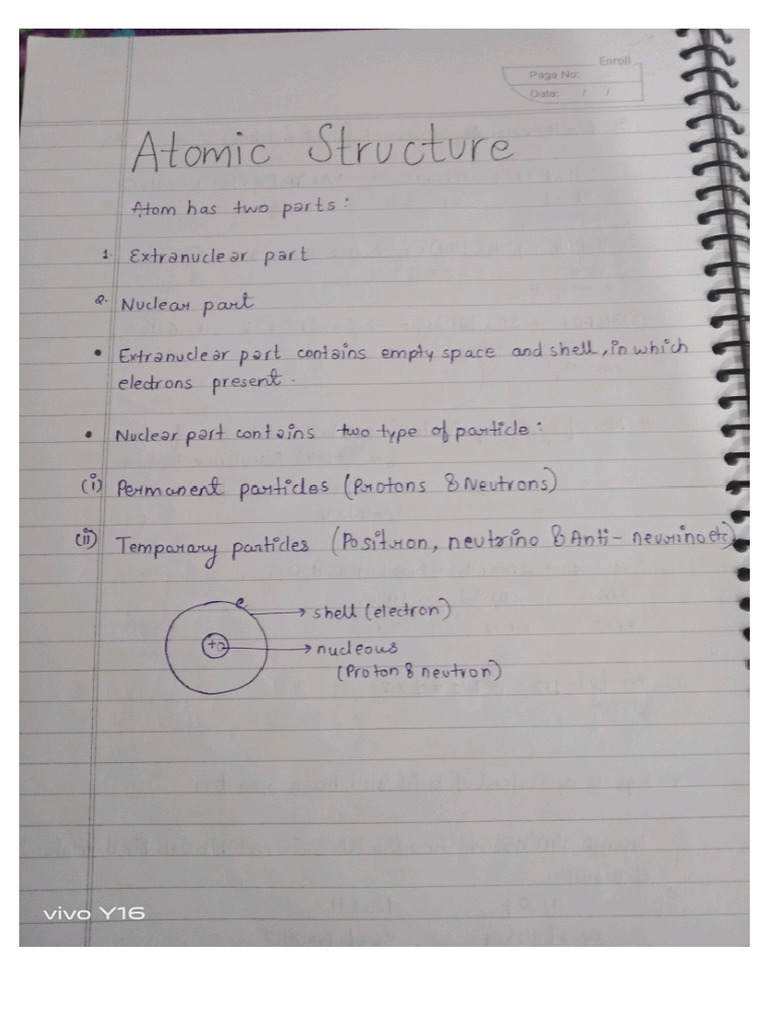 Enroll
Page No:
Date: / /
Atomic Structure
Atom has two parts:
1. Extranuclear part
2. Nuclear part
• Extranuclear part contains empty space and shell, in which
electrons present.
• Nuclear part contains two type of particle:
(i) Permanent particles (Protons & Neutrons)
(ii) Temparary particles (Positron, neutrino & Anti-neurino etc)
e
shell (electron)
+
nucleous
(Proton & neutron)
vivo Y16